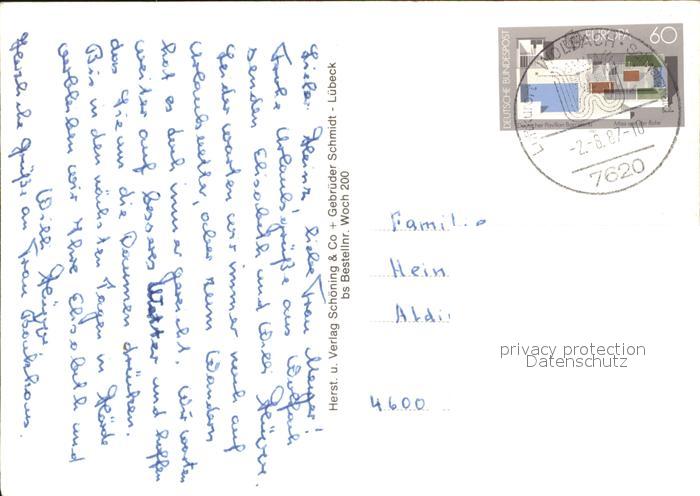 Lieber Heinz, liebe Frau Meyer!
Frohe Urlaubsgrüße aus Wolfach
senden Elisabeth und Willi Hüver.
Leider warten wir immer noch auf
Urlaubswetter, aber zum Wandern
hat es doch immer gereicht. Wir warten
weiter auf besseres Wetter und hoffen
das Sie uns die Daumen drücken.
Bis in den nächsten Tagen in Hörde
verbleiben wir Ihre Elisabeth und
Willi Hüver.
Herzliche Grüße an Frau
Herst. u. Verlag Schöning & Co + Gebrüder Schmidt - Lübeck
bs Bestellnr. Woch 200
DEUTSCHE BUNDESPOST
EUROPA 60
Deutscher Pavillon Barcelona
Mies van der Rohe
WOLFACH
-2.-6.87-10
7620
Familie
Hein
Aldi
4600
privacy protection
Datenschutz